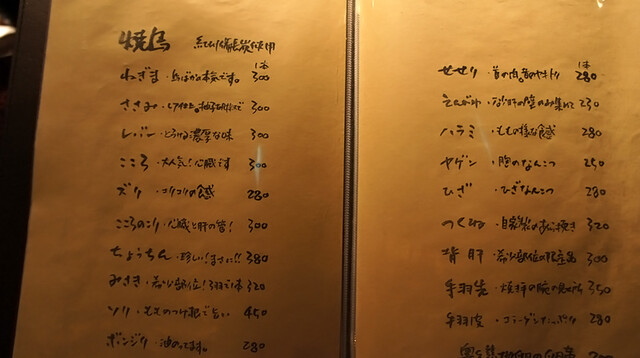 焼鳥 紀州備長炭使用
1本
ねぎま・鳥ばかな本気です。 300
ささみ・レアで。柚子胡椒で 300
レバー・とろける濃厚な味 300
こころ・大人気!心臓です 300
ズリ・コリコリの食感 280
こころのこり・心臓と肝の管! 300
ちょうちん・珍しい!まさに!! 380
みさき・希少部位!3羽で1本 320
ソリ・もものつけ根で旨い 450
ボンジリ・油のってます。 280
1本
せせり・首の肉。 280
えんがわ・ 230
ハラミ・ももの様な食感 280
ヤゲン・胸のなんこつ 250
ひざ・ひざなんこつ 280
つくね・自家製のあら挽き 320
背肝・希少部位の 300
手羽先・ 350
手羽皮・コラーゲンたっぷり 280